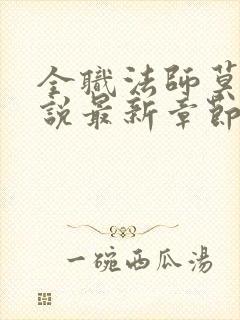 全職法師莫
說最新章節
一碗西瓜湯